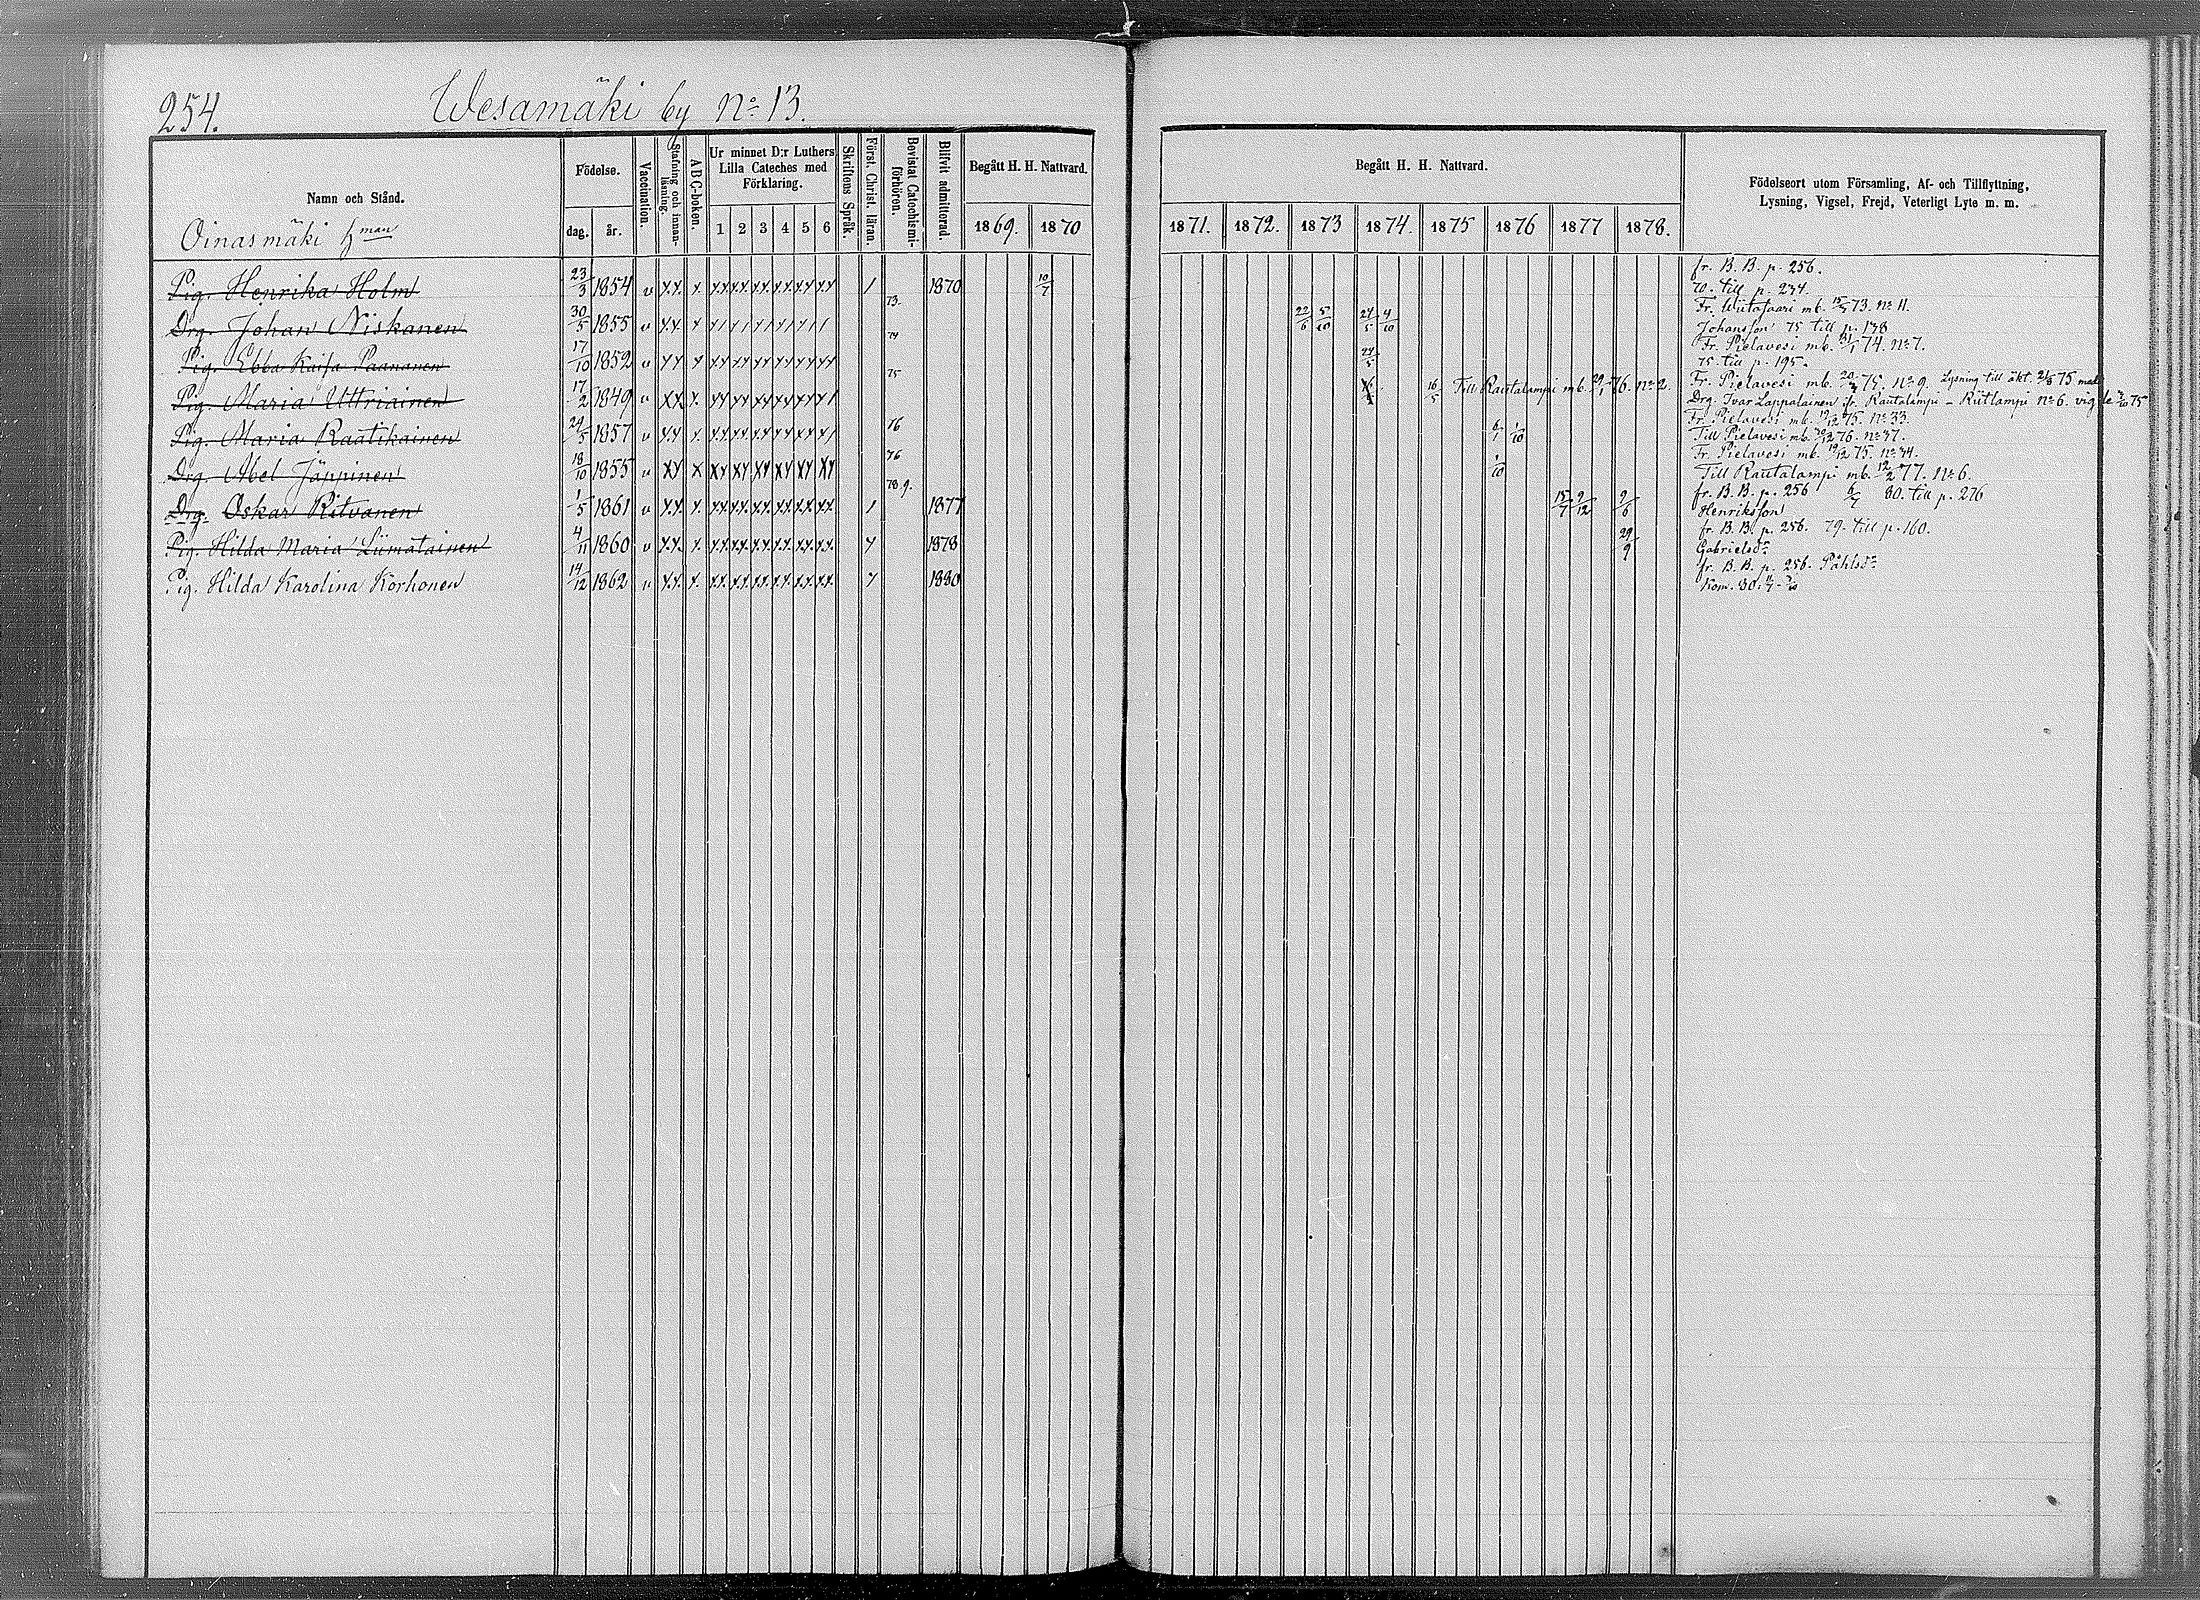 254.
Wesamäki by No 13.
Namn och Stånd.
Oinasmäki hman
Födelse.
dag. år.
Vaccination.
Stafning och innan-läsning.
A B C-boken.
Ur minnet D:r Luthers
Lilla Cateches med
Förklaring.
1 2 3 4 5 6
Skriftens Språk.
Först. Christ. läran.
Bevistat Catechismi-förhören.
Blifvit admitterad.
Begått H. H. Nattvard.
1869. 1870
Begått H. H. Nattvard.
1871. 1872. 1873 1874. 1875 1876 1877 1878.
Födelseort utom Församling, Af- och Tillflyttning,
Lysning, Vigsel, Frejd, Veterligt Lyte m. m.
fr. B. B. p. 256.
Pig. Henrika Holm 23/3 1854 v x.x. x xx xx xx xx xx xx 1 1870 10/7 70. till p. 234.
73. Fr. Wiitasaari mb. 15/5 73. no 11.
Drg. Johan Niskanen 30/5 1855 v x.x x x/ x/ x/ x/ x/ / 22/6 5/10 24/5 4/10 Johansson 75 till p. 138
74 Fr. Pielavesi mb. 31/1 74. no 7.
Pig. Ebba Kaisa Paananen 17/10 1852 v xx x xx xx xx xx xx xx 24/5 75. till p. 195.
75 Fr. Pielavesi mb. 20/3 75. no 9. Lysning till äkt. 21/8 75 med
Pig. Maria Uttriainen 17/2 1849 v xx x. xx xx xx xx xx x/ 16/5 Till Rautalampi mb. 29/1 76. no 2. Drg. Ivar Lappalainen fr. Rautalampi - Riitlampi No 6. vigde 3/10 75
76 Fr. Pielavesi mb. 19/12 75. no 33.
Pig. Maria Raatikainen 24/5 1857 v x.x x. xx xx xx xx xx x/ 6/1 1/10 Till Pielavesi mb. 30/12 76. no 37.
76 Fr. Pielavesi mb. 19/12 75. no 34.
Drg. Abel Jäppinen 18/10 1855 v xx x xx xx xx xx xx xx 1/10 Till Rautalampi mb. 12/2 77. no 6.
78.9. fr. B. B. p. 256 6/7 80. till p. 276
Drg. Oskar Ritvanen 1/5 1861 v x.x. x. xx xx xx xx xx xx 1 1877 15/7 9/12 9/6 Henriksson
fr. B. B. p. 256. 79. till p. 160.
Pig. Hilda Maria Liimatainen 4/11 1860 v x.x. x. xx xx xx xx xx xx 7 1878 29/9 Gabrielsdr
fr. B. B. p. 256. Påhlsdr
Pig. Hilda Karolina Korhonen 14/12 1862 v x.x. x. xx xx xx xx xx xx 7 1880 Kom. 80.